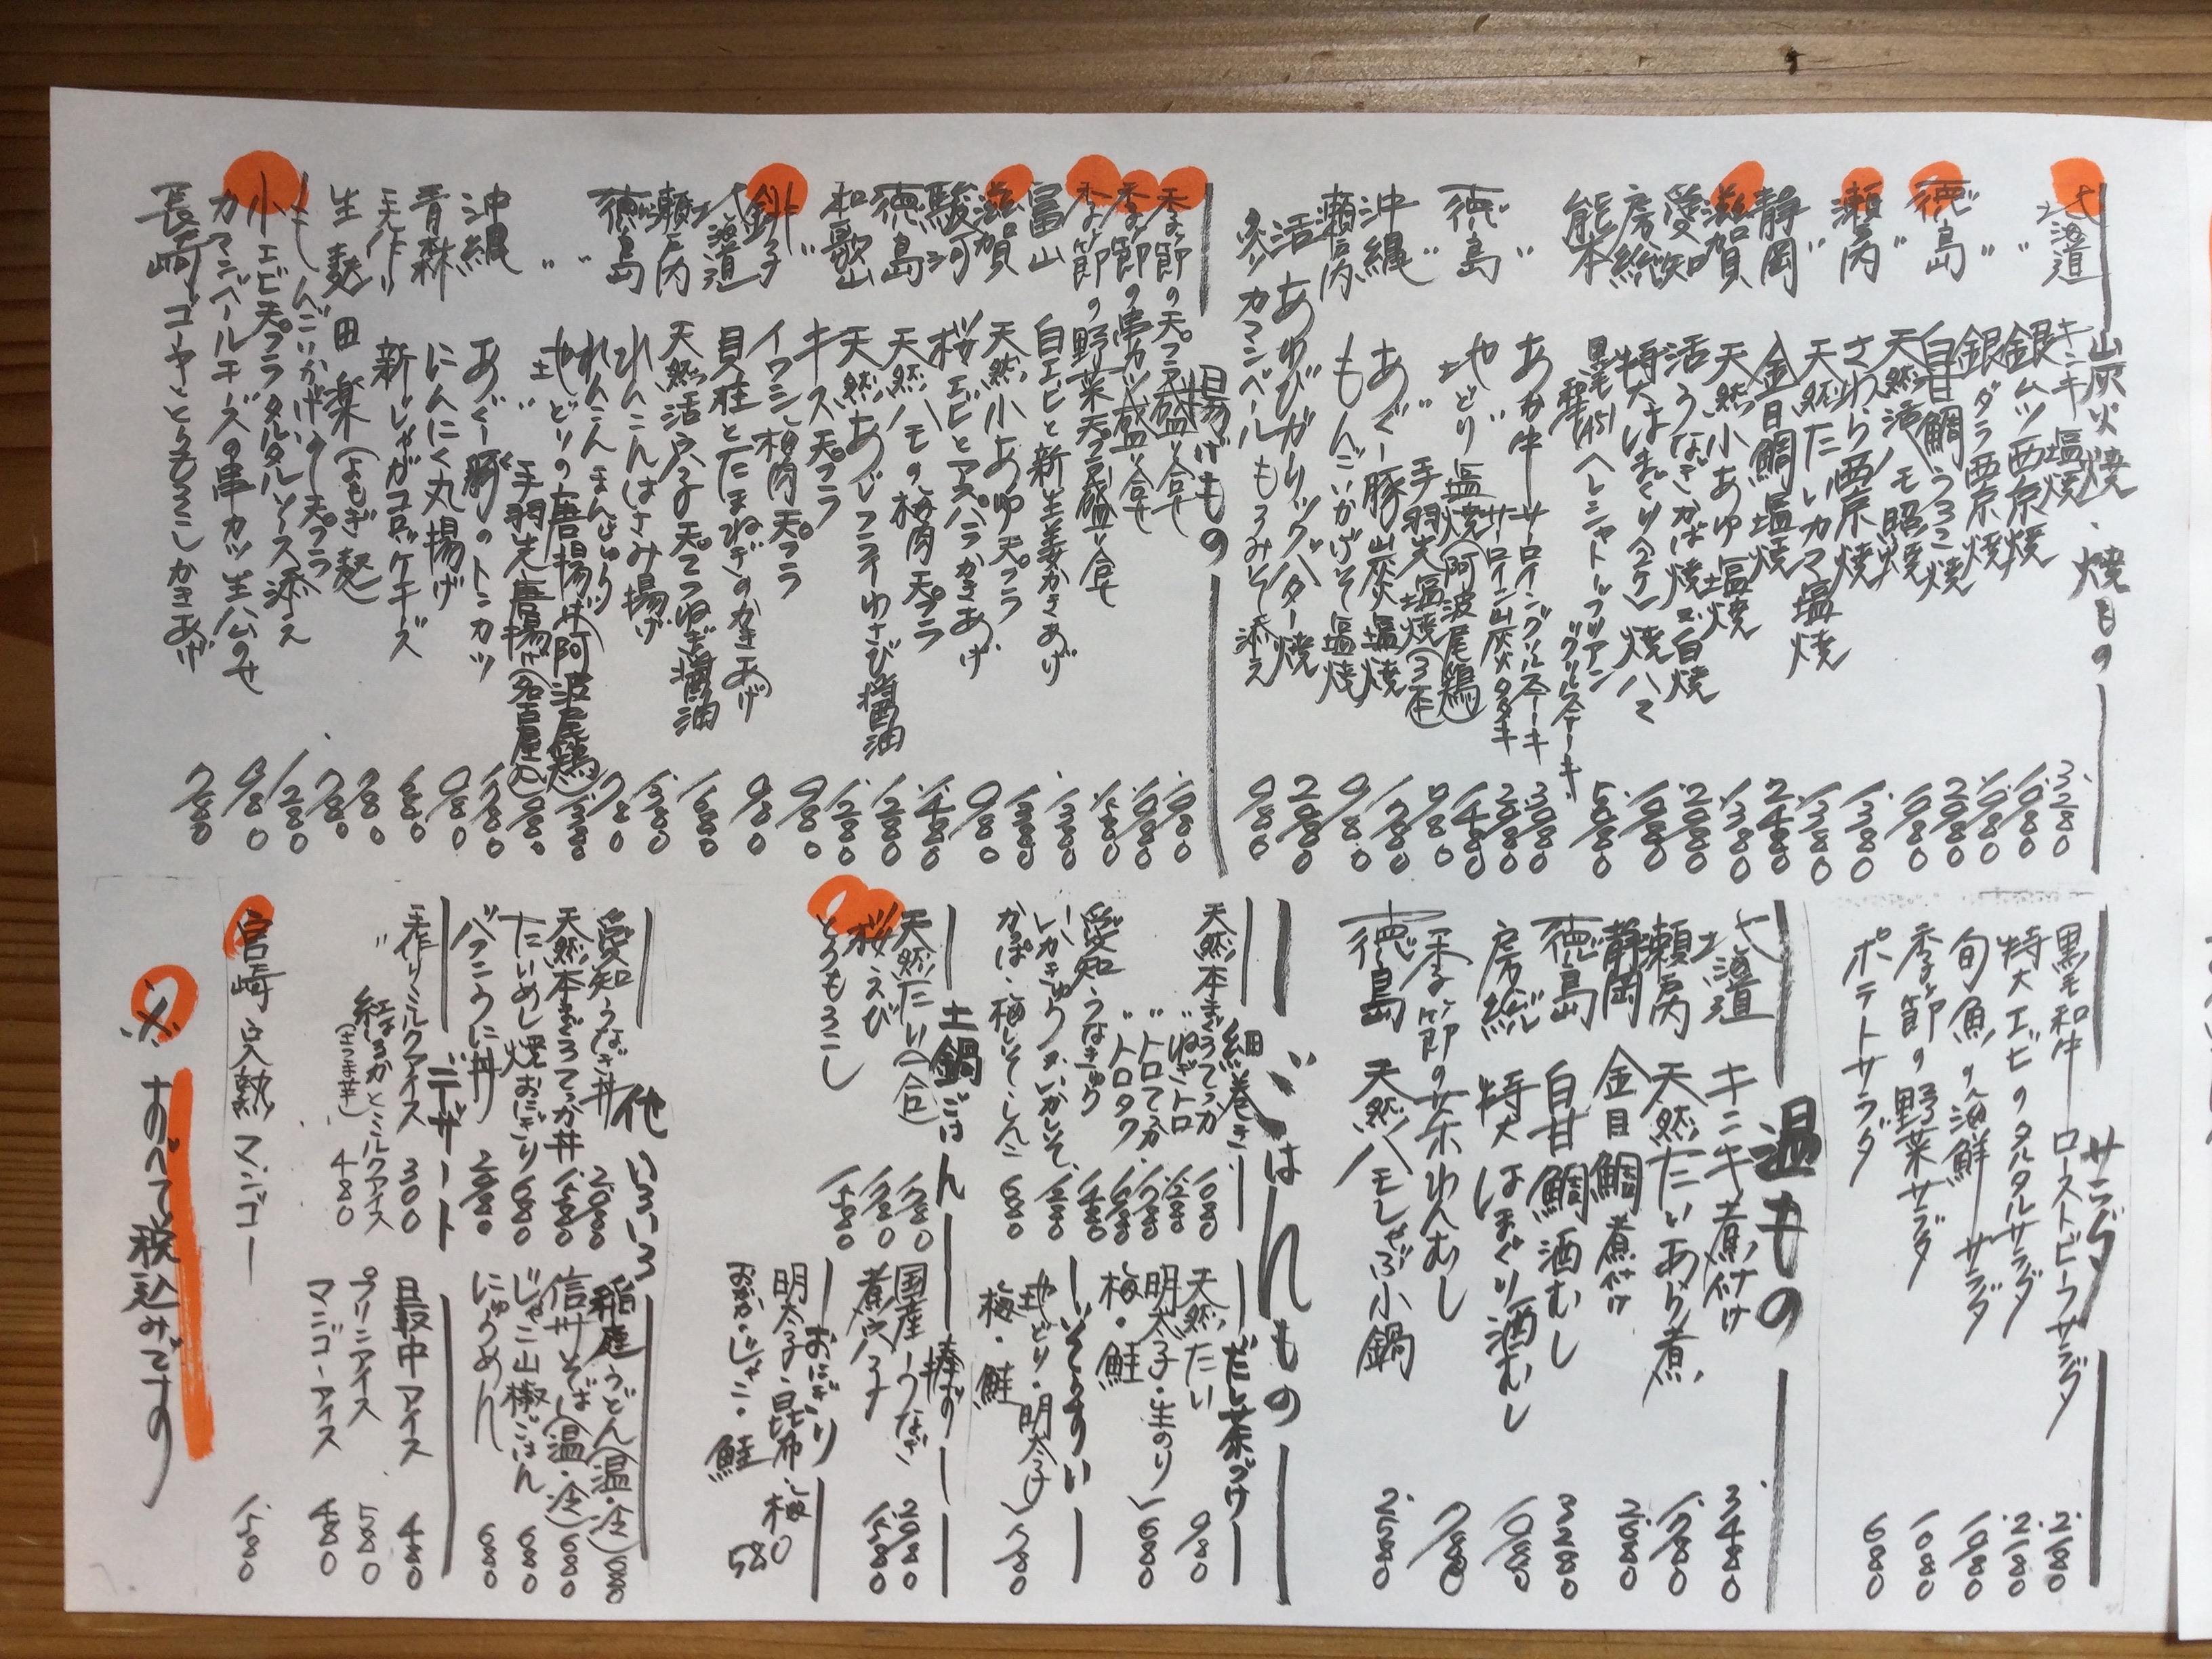 炭火焼、焼もの
北海道 キンキ塩焼 3280
〃 銀ムツ西京焼 1080
〃 銀ダラ西京焼 1080
徳島 白甘鯛うろこ焼 2080
〃 天然活ハモ照焼 1080
瀬戸内 さわら西京焼 1380
〃 天然たいカマ塩焼 1380
静岡 金目鯛塩焼 2480
滋賀 天然小あゆ塩焼 1380
愛知 活うなぎかば焼又白焼 2080
房総 特大はまぐり(2ケ)焼ハマ 1080
熊本 黒毛和牛(A5)ヘレシャトーブリアン
グリルステーキ 5080
〃 あか牛 サーロイングリルステーキ 3080
サーロイン炭火タタキ 2080
徳島 地どり塩焼(阿波尾鶏) 1480
〃 〃 手羽先塩焼(3本) 980
沖縄 あぐー豚炭火塩焼 1780
瀬戸内 もんごいかげそ塩焼 980
活あわびガーリックバター焼 2080
焼カマンベールもろみそ添え 980
揚げもの
季節の天プラ盛り合せ 1080
季節の串カツ盛り合せ 1080
季節の野菜天プラ盛り合せ 1580
富山 白エビと新生姜かきあげ 1380
滋賀 天然小あゆ天プラ 1380
駿河 桜エビとアスパラかきあげ 980
徳島 天然ハモの梅肉天プラ 1480
和歌山 天然あじフライわさび醤油 1280
〃 キス天プラ 1280
銚子 イワシ梅肉天プラ 980
北海道 貝柱とたまねぎのかきあげ 980
瀬戸内 天然活穴子天プラねぎ醤油 1680
徳島 れんこんはさみ揚げ 1380
〃 れんこんまんじゅう 780
〃 地どりの唐揚げ(阿波尾鶏) 1380
〃 手羽先唐揚げ(名古屋風) 1080
沖縄 あぐー豚のトンカツ 1780
青森 にんにく丸揚げ 980
手作り 新じゃがコロッケチーズ 680
生麩田楽(よもぎ麩) 780
もんごいかげその天プラ 780
小エビ天プラタルタルソース添え 1280
カマンベールチーズの串カツ生ハムのせ 980
長崎 ゴーヤととうもろこしかきあげ 780
サラダ
黒毛和牛ローストビーフサラダ 2180
特大エビのタルタルサラダ 2180
旬魚の海鮮サラダ 1080
季節の野菜サラダ 1080
ポテトサラダ 680
温もの
北海道 キンキ煮付け 3480
瀬戸内 天然たいあら煮 1780
静岡 金目鯛煮付け 2680
徳島 白甘鯛酒むし 3280
房総 特大はまぐり酒むし 1080
季節の茶わんむし 780
徳島 天然ハモしゃぶ小鍋 2580
ごはんもの
細巻き
天然本まぐろてっか 1080
〃 ねぎトロ 1280
〃 トロてっか 1780
〃 トロタク 1680
愛知 うなきゅう 1480
いかきゅう・いかしそ 1280
かっぱ・梅しそ・しんこ 680
だし茶づけ
天然たい 980
明太子・生のり
梅・鮭 680
ぞうすい
地どり・明太子
梅・鮭 780
土鍋ごはん
天然たい(一合) 1780
桜えび 1780
とうもろこし 1480
棒ずし
国産うなぎ 2080
煮穴子 1580
おにぎり
明太子・昆布・梅
おかか・じゃこ・鮭 580
他いろいろ
愛知うなぎ丼 2080
天然本まぐろてっか丼 1580
たいめし焼おにぎり 680
バフンうに丼 2080
稲庭うどん(温・冷) 680
信州そば(温・冷) 680
じゃこ山椒ごはん 680
にゅうめん 680
デザート
手作りミルクアイス 300
〃 紅はるかとミルクアイス
(さつま芋) 480
最中アイス 480
プリンアイス 580
マンゴーアイス 480
宮崎 完熟マンゴー 1580
※すべて税込みです